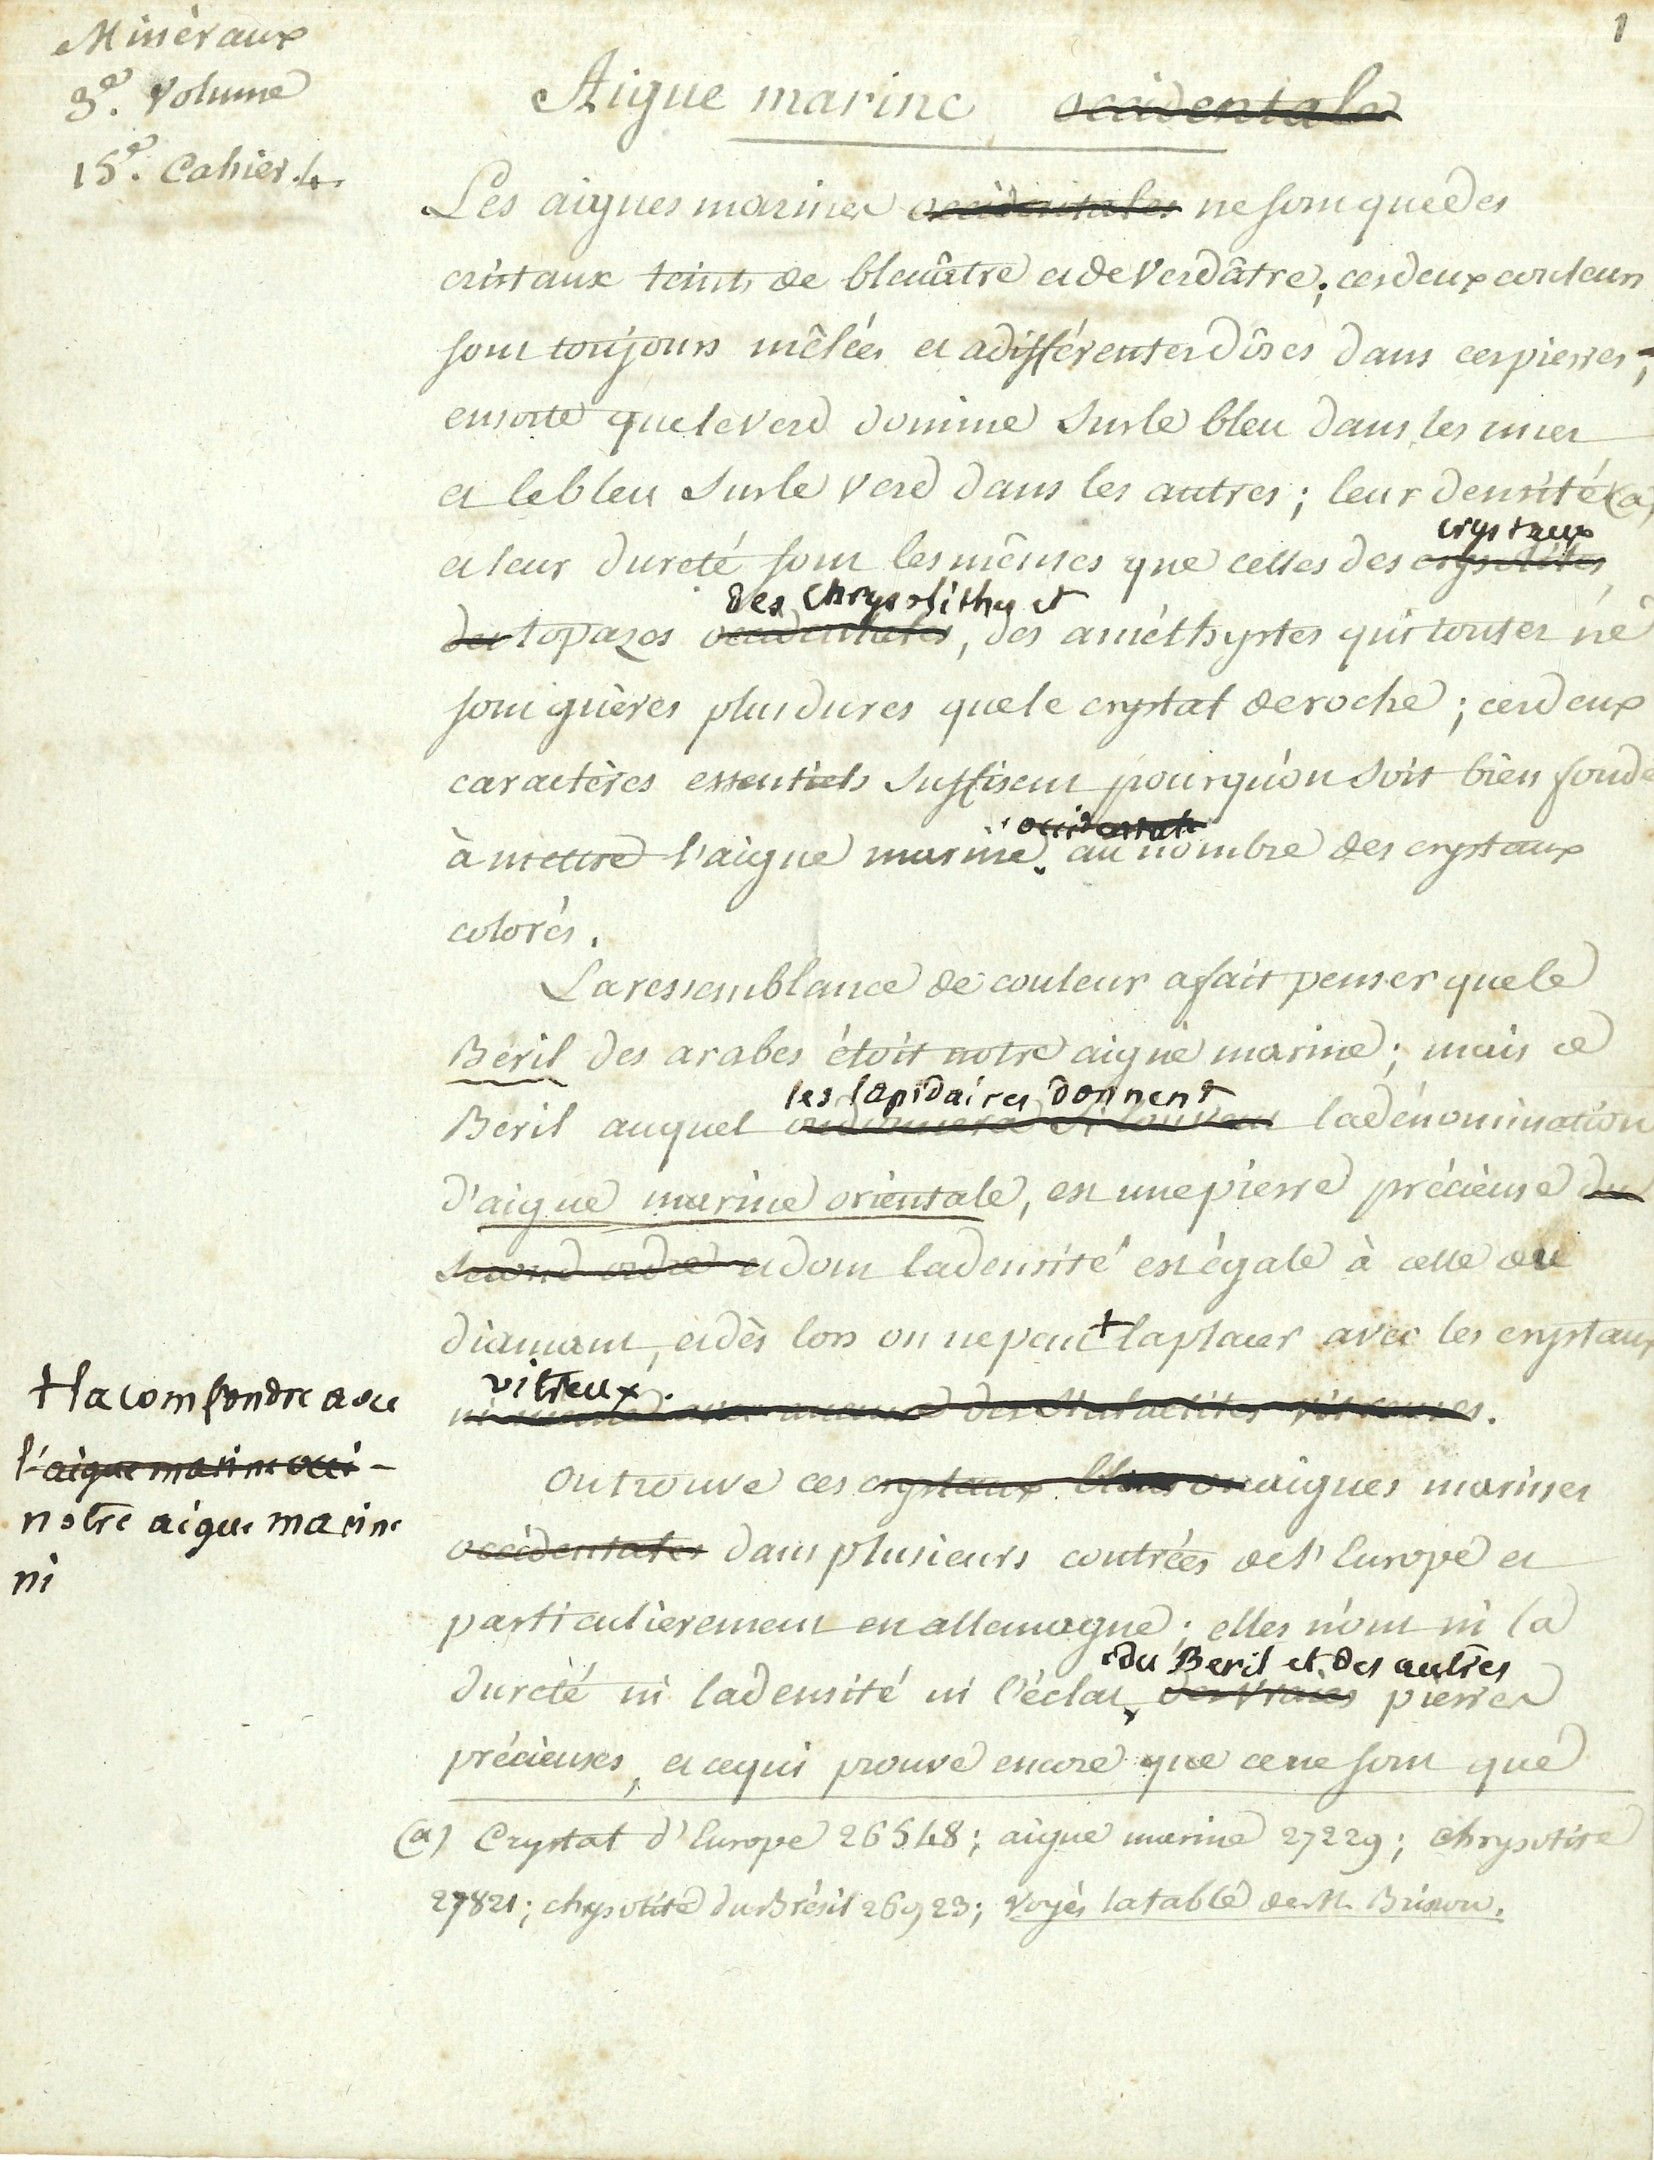 1
Minéraux
3e. Volume
15e. Cahier.
Aigue marine occidentale
Les aigues marines occidentales ne sont que des
cristaux teints de bleuâtre et de verdâtre; ces deux couleurs
sont toujours mêlées et a différentes dôses dans ces pierres;
ensorte que le verd domine sur le bleu dans les unes
et le bleu sur le verd dans les autres; leur densité (a)
crystaux
et leur dureté sont les mêmes que celles des crysolites,
des Chrysolithes et
des topazes occidentales, des améthystes qui toutes ne
sont guères plus dures que le crystal de roche; ces deux
caractères essentiels suffisent pour qu'on soit bien fondé
occidentale
à mettre l'aigue marine au nombre des crystaux
colorés.
La ressemblance de couleur a fait penser que le
Béril des arabes étoit notre aigue marine; mais ce
les lapidaires donnent
Béril auquel la dénomination
d'aigue marine orientale, est une pierre précieuse du
second ordre et dont la densité est égale à celle du
diamant, et dès lors on ne peut + la placer avec les crystaux
vitreux.
ni même avec aucune des stalactites vitreuses.
+ la comfondre avec
l'aigue marine occi-
notre aigue marine
ni
On trouve ces crystaux bleus ou aigues marines
occidentales dans plusieurs contrées de l'Europe et
particulièrement en allemagne; elles n'ont ni la
du Béril et des autres
dureté ni la densité ni l'éclat des vraies pierres
précieuses, et ce qui prouve encore que ce ne sont que
(a) Crystal d'Europe 26548; aigue marine 27229; chrysolite
27821; chrysolite du Brésil 26923; Voyés la table de M. Brisson.